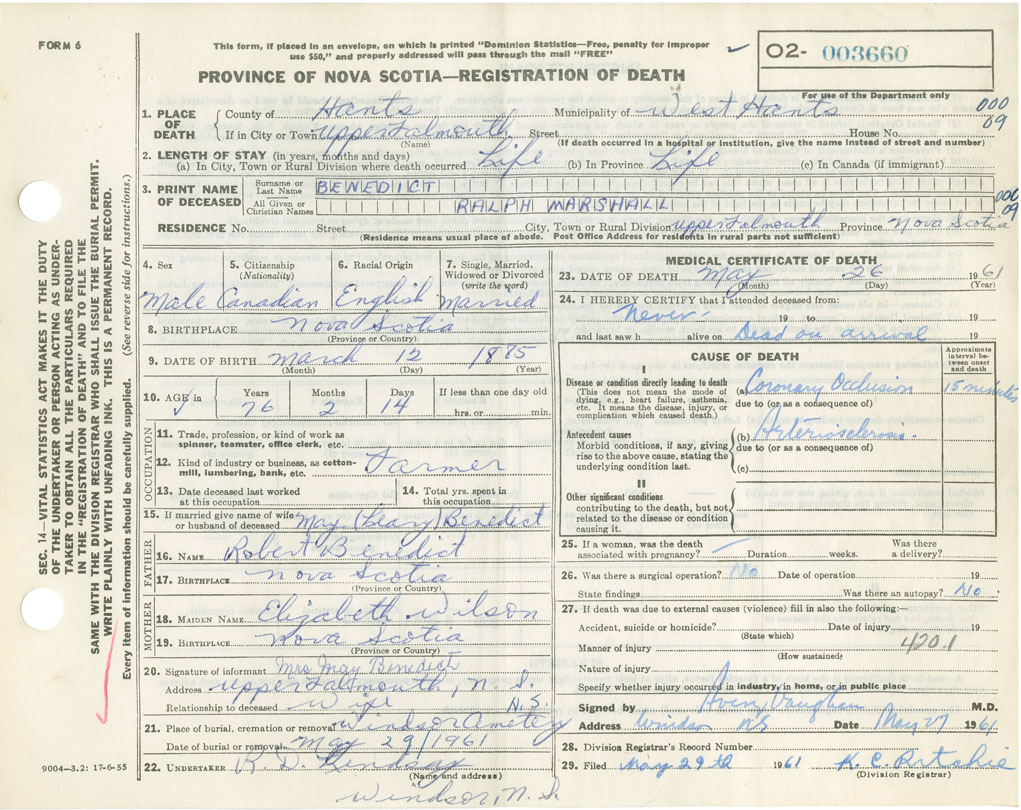 FORM 6
This form, if placed in an envelope, on which is printed "Dominion Statistics—Free, penalty for improper
use $50," and properly addressed will pass through the mail "FREE"
O2- 003660
For use of the Department only
PROVINCE OF NOVA SCOTIA—REGISTRATION OF DEATH
1. PLACE OF DEATH
County of Hants Municipality of West Hants 000
If in City or Town Upper Falmouth Street House No. 09
(Name) (If death occurred in a hospital or institution, give the name instead of street and number)
2. LENGTH OF STAY (in years, months and days)
(a) In City, Town or Rural Division where death occurred Life (b) In Province Life (c) In Canada (if immigrant)
3. PRINT NAME OF DECEASED
Surname or Last Name BENEDICT
All Given or Christian Names RALPH MARSHALL
000
09
RESIDENCE No. Street City, Town or Rural Division Upper Falmouth Province Nova Scotia
(Residence means usual place of abode. Post Office Address for residents in rural parts not sufficient)
4. Sex Male
5. Citizenship (Nationality) Canadian
6. Racial Origin English
7. Single, Married, Widowed or Divorced (write the word) Married
8. BIRTHPLACE Nova Scotia
(Province or Country)
9. DATE OF BIRTH March 12 1885
(Month) (Day) (Year)
10. AGE in Years 76 Months 2 Days 14 If less than one day old hrs. or min.
OCCUPATION
11. Trade, profession, or kind of work as
spinner, teamster, office clerk, etc.
12. Kind of industry or business, as cotton-
mill, lumbering, bank, etc. Farmer
13. Date deceased last worked
at this occupation
14. Total yrs. spent in
this occupation
15. If married give name of wife
or husband of deceased May (Leary) Benedict
FATHER
16. NAME Robert Benedict
17. BIRTHPLACE Nova Scotia
(Province or Country)
MOTHER
18. MAIDEN NAME Elizabeth Wilson
19. BIRTHPLACE Nova Scotia
(Province or Country)
20. Signature of informant Mrs May Benedict
Address Upper Falmouth, N. S.
Relationship to deceased Wife N.S.
21. Place of burial, cremation or removal Windsor
Date of burial or removal May 29/1961
22. UNDERTAKER R. D. Lindsay
(Name and address)
Windsor, N. S.
MEDICAL CERTIFICATE OF DEATH
23. DATE OF DEATH May 26 1961
(Month) (Day) (Year)
24. I HEREBY CERTIFY that I attended deceased from:
Never 19 to 19
and last saw h alive on Dead on arrival 19
CAUSE OF DEATH
Approximate interval between onset and death
I
Disease or condition directly leading to death
(This does not mean the mode of
dying, e.g., heart failure, asthenia,
etc. It means the disease, injury, or
complication which caused death.)
(a) Coronary Occlusion 15 minutes
due to (or as a consequence of)
Antecedent causes
Morbid conditions, if any, giving
rise to the above cause, stating the
underlying condition last.
(b) Arteriosclerosis.
due to (or as a consequence of)
(c)
II
Other significant conditions
contributing to the death, but not
related to the disease or condition
causing it.
25. If a woman, was the death
associated with pregnancy? — Duration weeks. Was there
a delivery?
26. Was there a surgical operation? No Date of operation 19
State findings Was there an autopsy? No
27. If death was due to external causes (violence) fill in also the following:—
Accident, suicide or homicide? Date of injury 19
(State which)
Manner of injury 420.1
(How sustained)
Nature of injury
Specify whether injury occurred in industry, in home, or in public place
Signed by Vaughan M.D.
Address Windsor NS Date May 27 1961
28. Division Registrar's Record Number
29. Filed May 29th 1961 K. C. Ritchie
(Division Registrar)
SEC. 14—VITAL STATISTICS ACT MAKES IT THE DUTY
OF THE UNDERTAKER OR PERSON ACTING AS UNDER-
TAKER TO OBTAIN ALL THE PARTICULARS REQUIRED
IN THE "REGISTRATION OF DEATH" AND TO FILE THE
SAME WITH THE DIVISION REGISTRAR WHO SHALL ISSUE THE BURIAL PERMIT.
WRITE PLAINLY WITH UNFADING INK. THIS IS A PERMANENT RECORD.
Every item of information should be carefully supplied. (See reverse side for instructions.)
9004-3.2: 17-6-55